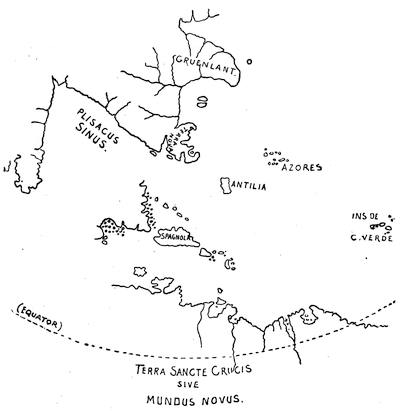 GRUENLANT.
PLISACUS
SINUS.
TERRA NOVA
AZORES
ANTILIA
INS DE
C. VERDE
SPAGNOLA
(EQUATOR)
TERRA SANCTE CRUCIS
SIVE
MUNDUS NOVUS.